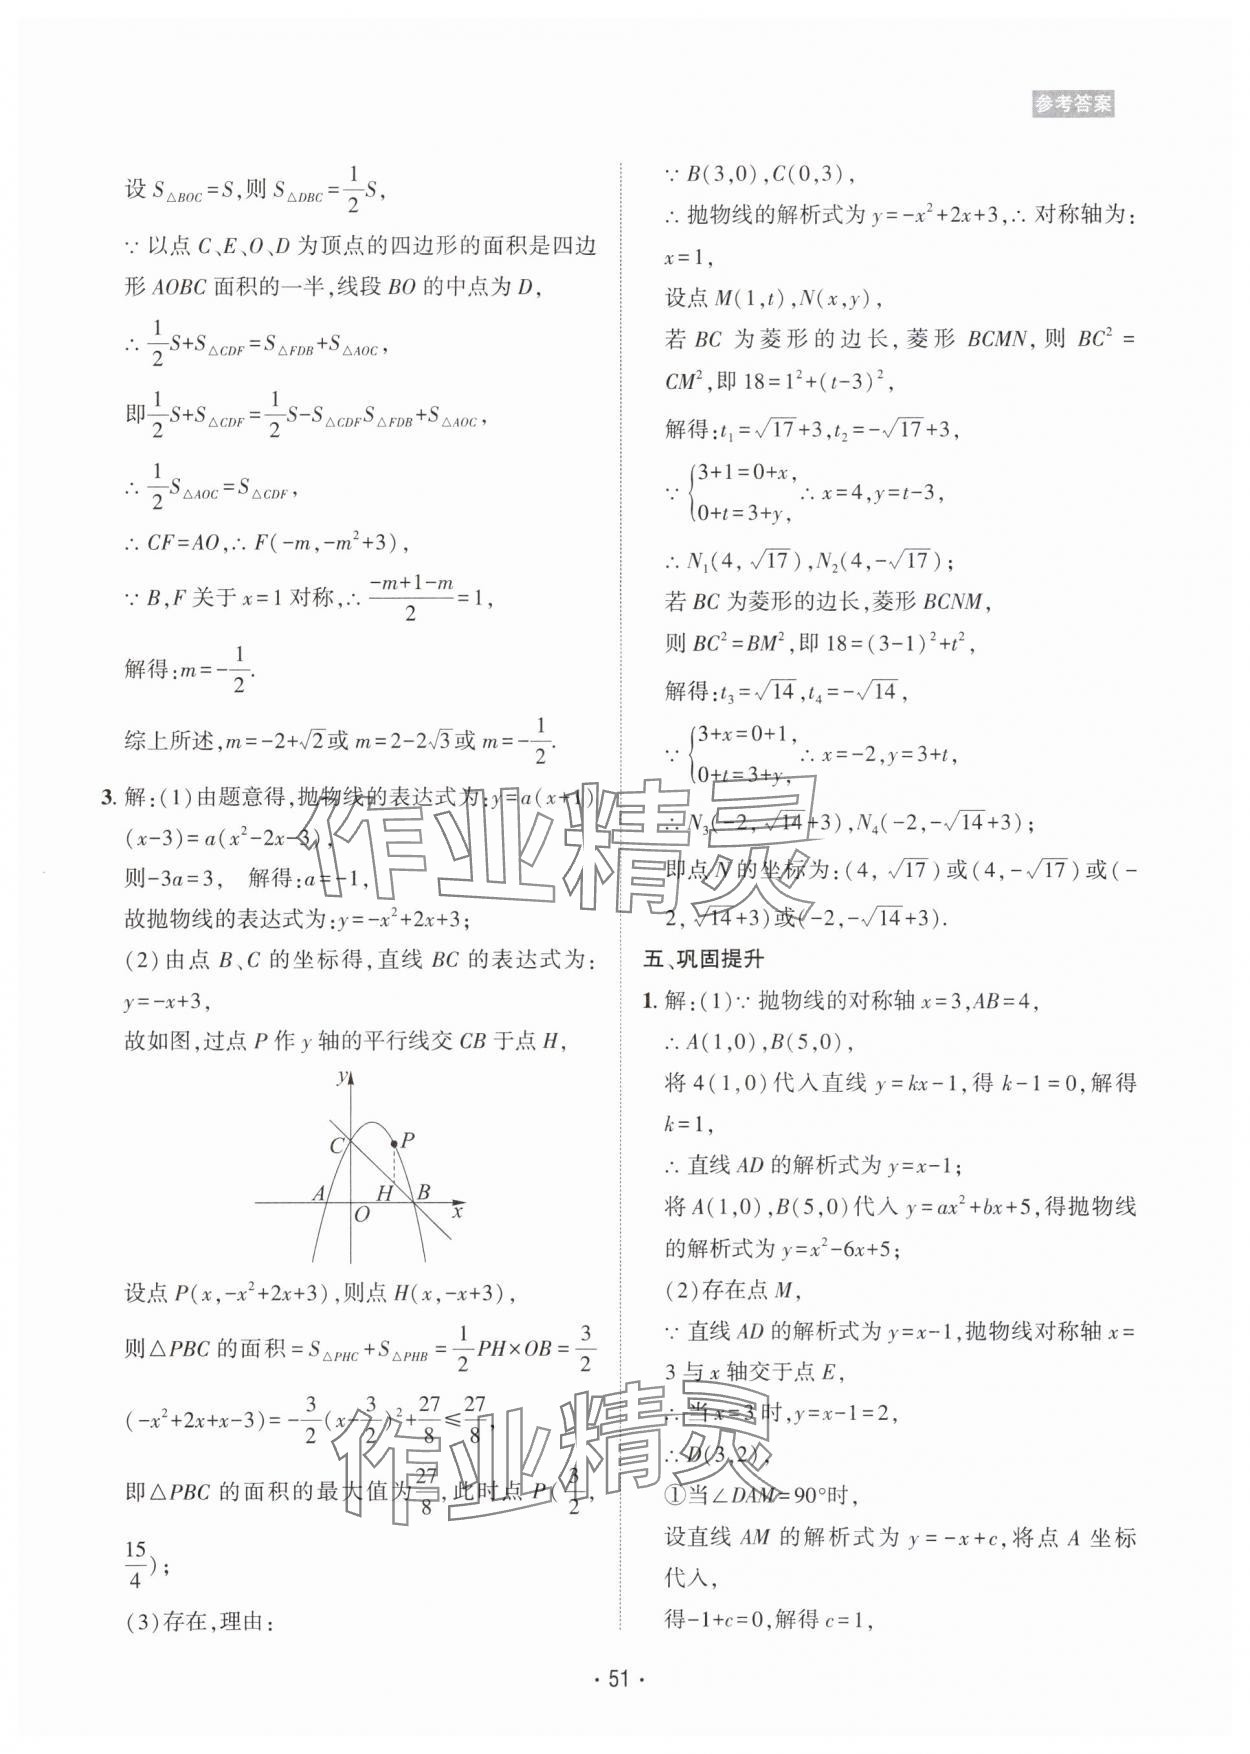 参考答案
设 S△BOC=S,则 S△DBC=1/2 S,
∵ 以点 C、E、O、D 为顶点的四边形的面积是四边
形 AOBC 面积的一半,线段 BO 的中点为 D,
∴ 1/2 S+S△CDF=S△FDB+S△AOC,
即 1/2 S+S△CDF=1/2 S-S△CDF S△FDB+S△AOC,
∴ 1/2 S△AOC=S△CDF,
∴ CF=AO,∴ F(-m,-m²+3),
∵ B,F 关于 x=1 对称,∴ (-m+1-m)/2=1,
解得:m=-1/2.
综上所述,m=-2+√2或 m=2-2√3或 m=-1/2.
3. 解:(1)由题意得,抛物线的表达式为:y=a(x+1)
(x-3)=a(x²-2x-3),
则-3a=3, 解得:a=-1,
故抛物线的表达式为:y=-x²+2x+3;
(2)由点 B、C 的坐标得,直线 BC 的表达式为:
y=-x+3,
故如图,过点 P 作 y 轴的平行线交 CB 于点 H,
y
C
P
A
H
B
O
x
设点 P(x,-x²+2x+3),则点 H(x,-x+3),
则△PBC 的面积=S△PHC+S△PHB=1/2 PH×OB=3/2
(-x²+2x+x-3)=-3/2(x-3/2)²+27/8≤27/8,
即△PBC 的面积的最大值为27/8,此时点 P(3/2,
15/4);
(3)存在,理由:
∵ B(3,0),C(0,3),
∴ 抛物线的解析式为 y=-x²+2x+3,∴ 对称轴为:
x=1,
设点 M(1,t),N(x,y),
若 BC 为菱形的边长,菱形 BCMN,则 BC²=
CM²,即 18=1²+(t-3)²,
解得:t₁=√17+3,t₂=-√17+3,
∵ {3+1=0+x,
0+t=3+y, ∴ x=4,y=t-3,
∴ N₁(4,√17),N₂(4,-√17);
若 BC 为菱形的边长,菱形 BCNM,
则 BC²=BM²,即 18=(3-1)²+t²,
解得:t₃=√14,t₄=-√14,
∵ {3+x=0+1,
0+t=3+y, ∴ x=-2,y=3+t,
∴ N₃(-2,√14+3),N₄(-2,-√14+3);
即点 N 的坐标为:(4,√17)或(4,-√17)或(-
2,√14+3)或(-2,-√14+3).
五、巩固提升
1. 解:(1)∵ 抛物线的对称轴 x=3,AB=4,
∴ A(1,0),B(5,0),
将 4(1,0)代入直线 y=kx-1,得 k-1=0,解得
k=1,
∴ 直线 AD 的解析式为 y=x-1;
将 A(1,0),B(5,0)代入 y=ax²+bx+5,得抛物线
的解析式为 y=x²-6x+5;
(2)存在点 M,
∵ 直线 AD 的解析式为 y=x-1,抛物线对称轴 x=
3 与 x 轴交于点 E,
∴ 当 x=3 时,y=x-1=2,
∴ D(3,2),
①当∠DAM=90°时,
设直线 AM 的解析式为 y=-x+c,将点 A 坐标
代入,
得-1+c=0,解得 c=1,
· 51 ·
作业精灵
作业精灵